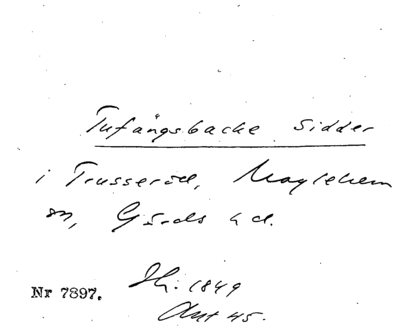 Tufängsbacke Sidder
i Trusseröd, Maglehem
sn, Gärds hd.
Nr 7897.
1849
Ant 45.